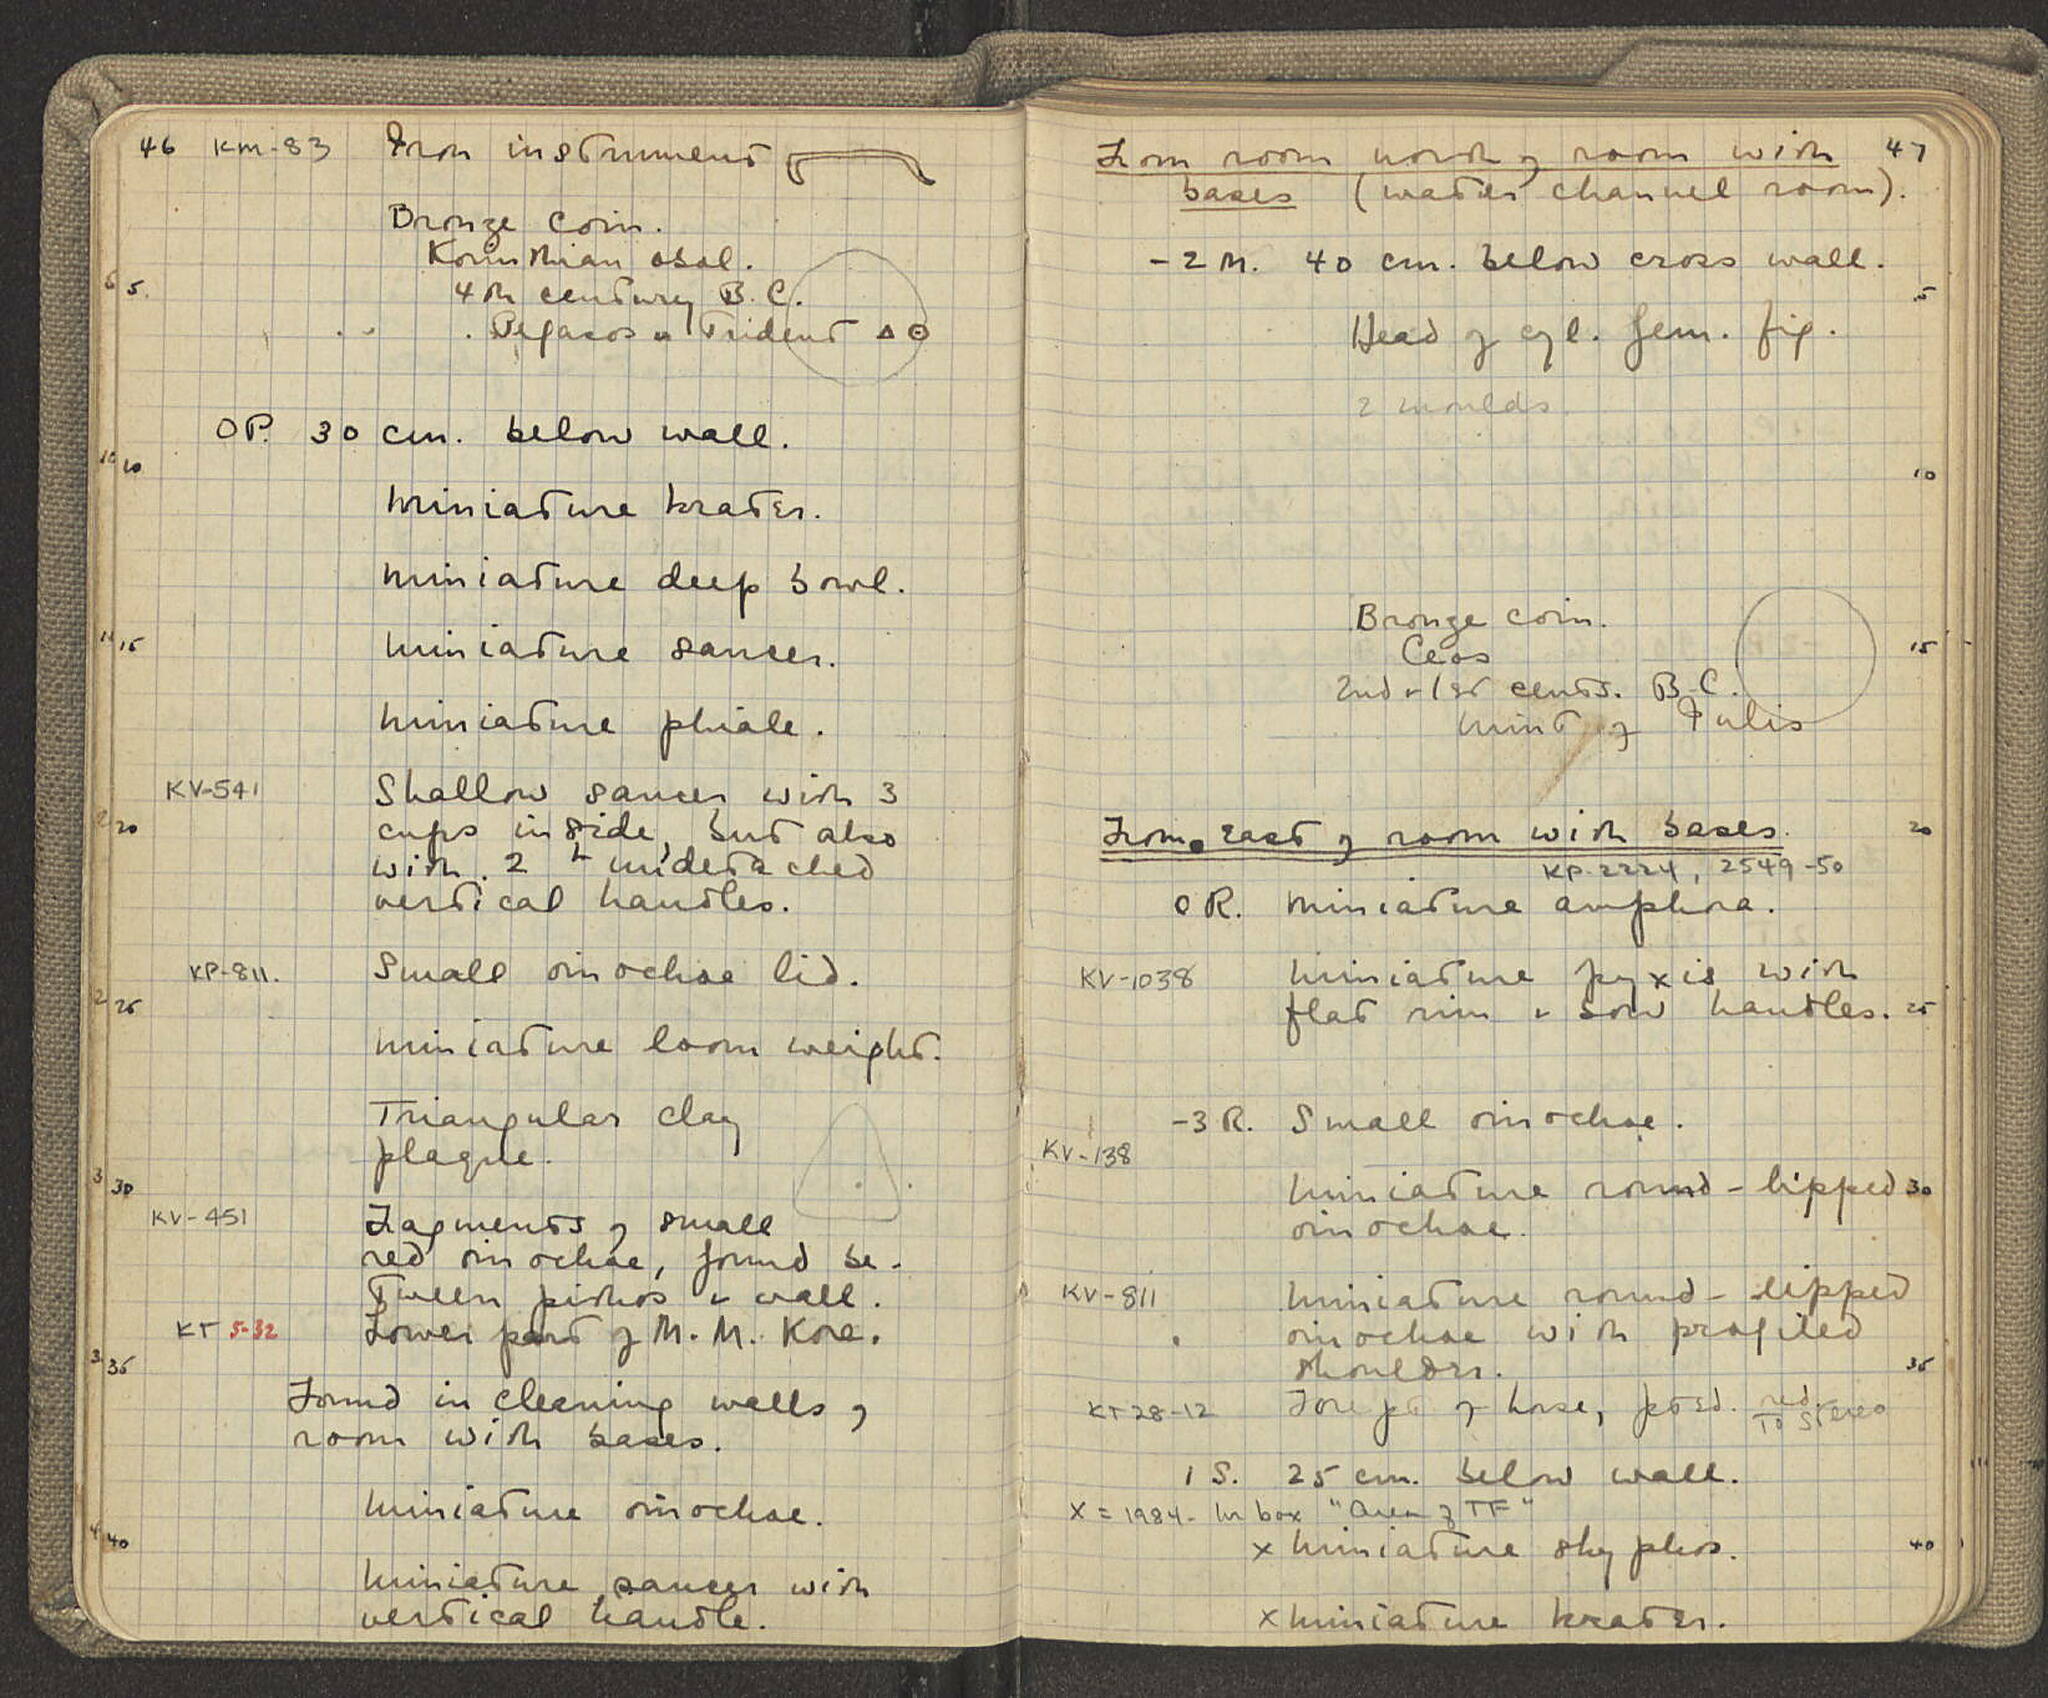 46 KM-83 Iron instrument
Bronze coin.
Korinthian obol.
5 4th century B.C.
Pegasos & Trident Δ ⊙
OP. 30 cm. below wall.
10
miniature krater.
miniature deep bowl.
15 miniature saucer.
miniature phiale.
KV-541 Shallow saucer with 3
20 cups inside, but also
with 2 undetached
vertical handles.
KP-811. Small oinochoe lid.
25
miniature loom weight.
Triangular clay
plaque.
30
KV-451 Fragments of small
red oinochoe, found be-
tween pithos & wall.
KT 5-32 Lower part of M.M. Kore.
35
Found in cleaning walls of
room with bases.
miniature oinochoe.
40
miniature saucer with
vertical handle.
From room north of room with 47
bases (water channel room).
-2 M. 40 cm. below cross wall.
5
Head of cyl. fem. fig.
2 moulds.
10
Bronze coin.
Ceos 15
2nd-1st cents. B.C.
mint of Iulis
From East of room with bases. 20
KP-2224, 2549-50
OR. miniature amphora.
KV-1038 miniature pyxis with
flat rim & bow handles. 25
-3 R. Small oinochoe.
KV-138
miniature round-lipped 30
oinochoe.
KV-811 miniature round-lipped
oinochoe with profiled
shoulder. 35
KT 28-12 Fore pt of horse, pted. red.
To Stereo
1 S. 25 cm. below wall.
X = 1984- In box "Area of TF"
x miniature skyphos. 40
x miniature krater.